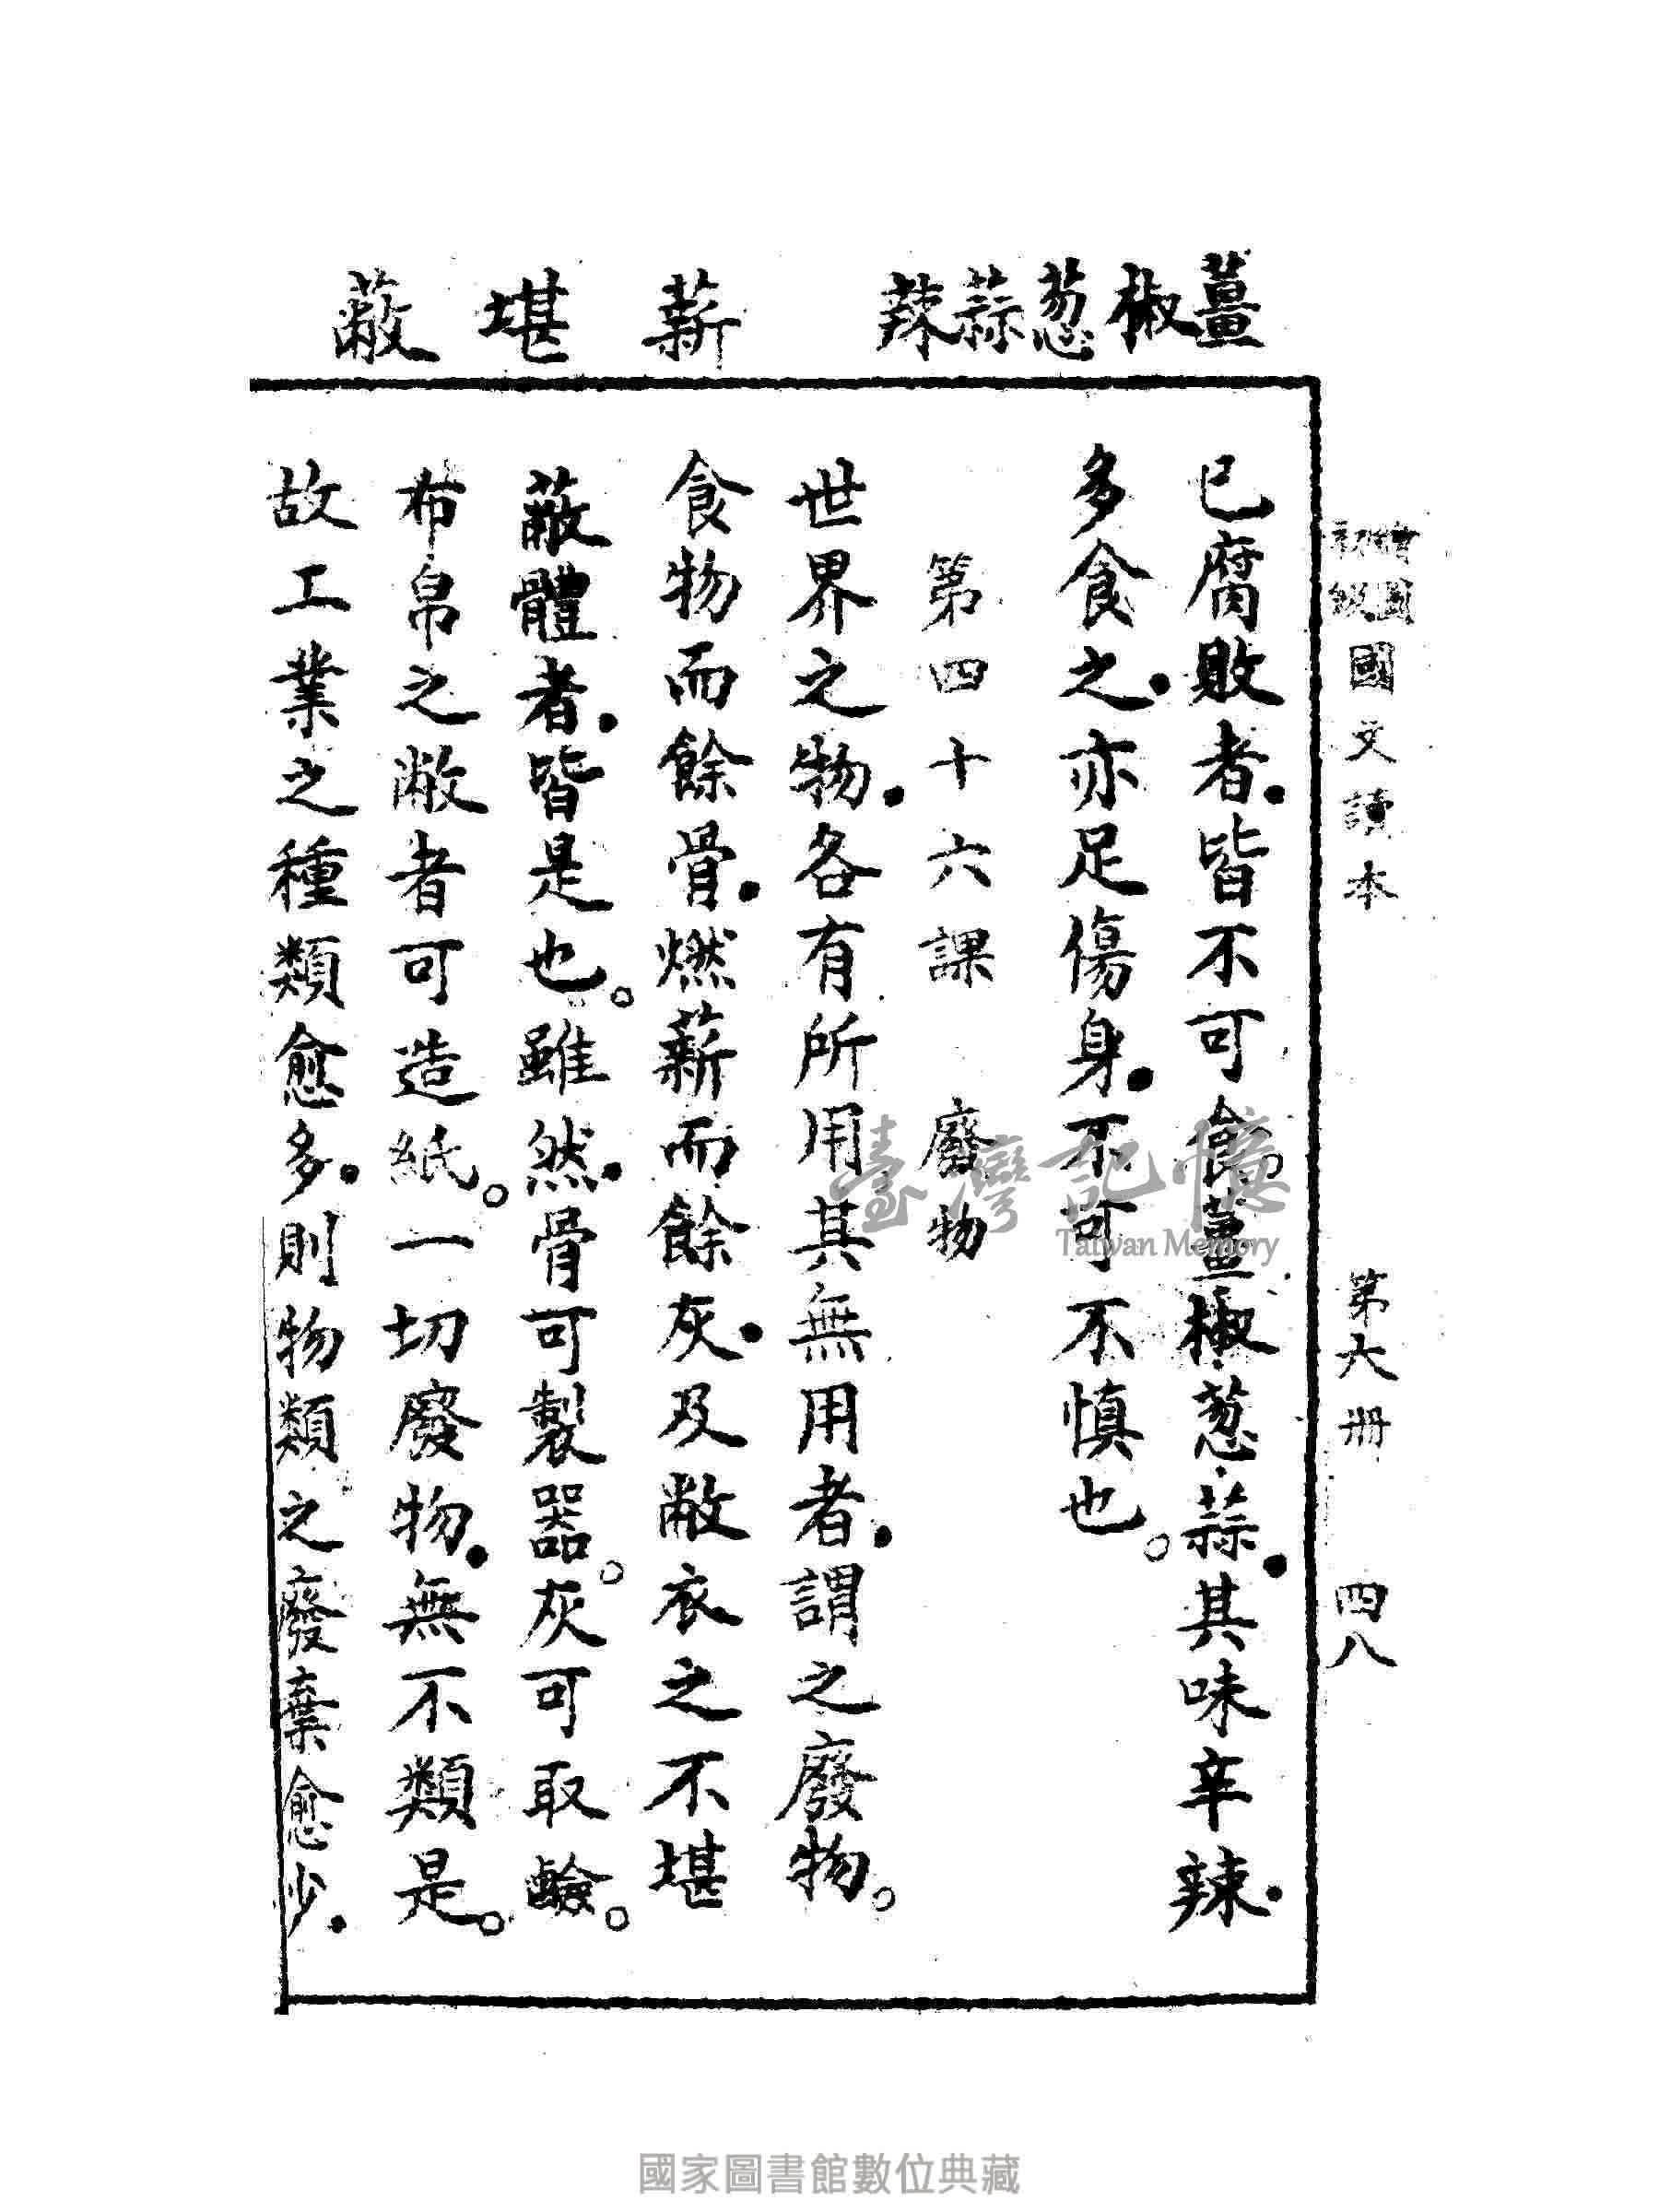 繪圖初級國文讀本　第六冊　四八
薑椒葱蒜辣　薪　堪　蔽
已腐敗者．皆不可食薑椒葱蒜．其味辛辣．
多食之．亦足傷身．不可不慎也。
第四十六課　廢物
世界之物．各有所用其無用者．謂之廢物。
食物而餘骨．燃薪而餘灰．及敝衣之不堪
蔽體者．皆是也。雖然．骨可製器。灰可取鹼。
布帛之敝者可造紙。一切廢物．無不類是。
故工業之種類愈多．則物類之廢棄愈少．
臺灣記憶
Taiwan Memory
國家圖書館數位典藏